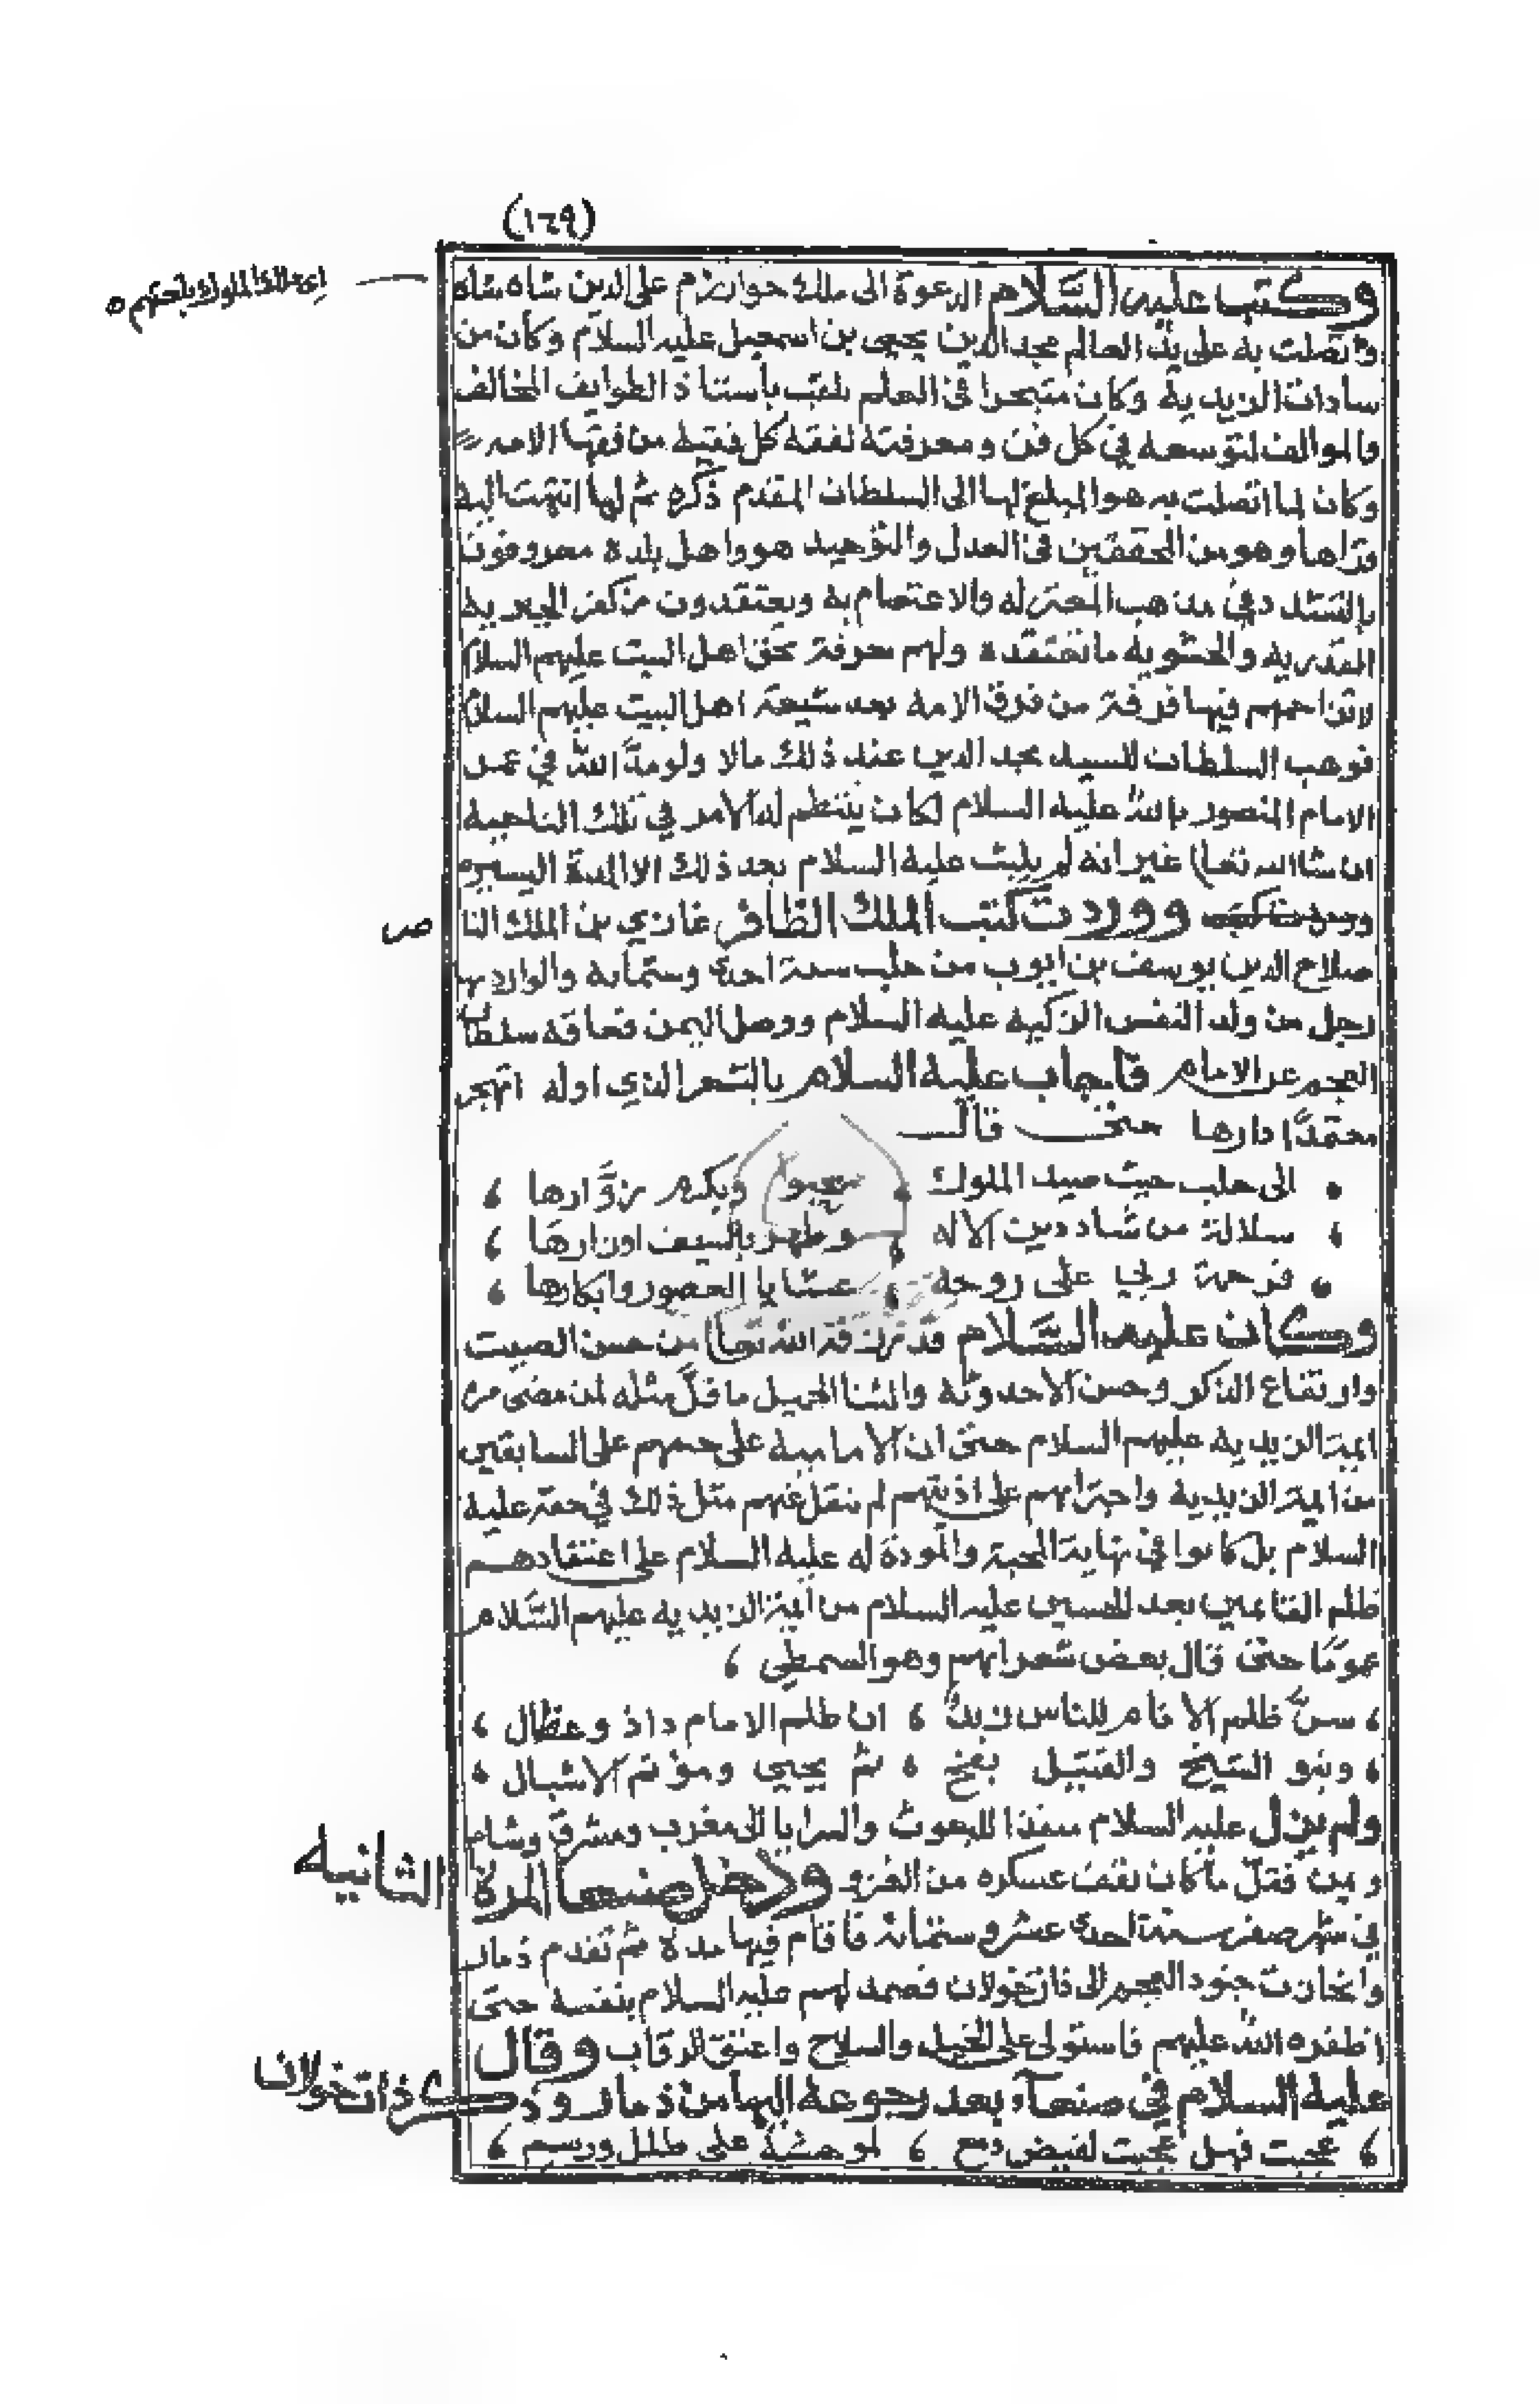 (١٦٩)
وكتب عليه السلام الدعوة الى ملك خوارزم على الدين شاه شاه
اي ملك الملوك بلغتهم ه
واتصلت به على يد العالم مجد الدين يحيى بن اسمعيل عليه السلام وكان من
سادات الزيدية وكان متبحرا في العلم يلقب بأستاذ الطوايف المخالف
والموالف لتوسعه في كل فن ومعرفته لفقه كل فقيه من فقها الامه
وكان لما اتصلت به هو المبلغ لها الى السلطان المقدم ذكره ثم لها انتهت اليه
قراها وهو من المحققين في العدل والتوحيد هو واهل بلده معروفون
بالتشدد في مذهب المعتزله والاعتصام به ويعتقدون من كفر الجبريه
القدريه والحشويه ما نعتقده ولهم معرفة بحق اهل البيت عليهم السلام
لا تزاحمهم فيها فرقة من فرق الامه بعد شيعة اهل البيت عليهم السلام
فوهب السلطان للسيد مجد الدين عند ذلك مالا ولو مد الله في عمر
الامام المنصور بالله عليه السلام لكان ينتظم له الامر في تلك الناحية
ان شاالله تعا) غير انه لم يلبث عليه السلام بعد ذلك الا المدة اليسيره
ووردت كتب الملك الظافر غازي بن الملك النا
ص
صلاح الدين يوسف بن ايوب من حلب سنة احدى وستمايه والوارد بها
رجل من ولد النفس الزكيه عليه السلام ووصل اليمن فعاقه سلطان
العجم عن الامام فاجاب عليه السلام بالشعر الذي اوله اتهجر
محتمدا دارها حتى قال
الى حلب حيث صيد الملوك ، ويكرم زوارها ،
، سلالة من شاد دين الاله ، وطهر بالسيف اوزارها ،
فرحمة ربي على روحه ، عشايا العصور وابكارها ،
وكان عليه السلام قد رزقه الله تعا) من حسن الصيت
وارتفاع الذكر وحسن الاحدوثه والثنا الجميل ما قل مثله لمن مضى من
ايمة الزيديه عليهم السلام حتى ان الاماميه على حملهم على السابقين
من ايمة الزيديه واجترائهم على اذيتهم لم ينقل عنهم مثل ذلك في حقه عليه
السلام بل كانوا في نهاية المحبة والمودة له عليه السلام على اعتقادهم
ظلم القائمين بعد الحسين عليه السلام من ايمة الزيديه عليهم السلام
عموما حتى قال بعض شعرائهم وهو السمطي ،
، سن ظلم الانام للناس زيد ، ان ظلم الامام داذ وعقال ،
، وبنو الشيخ والقتيل بفخ ، ثم يحيى ومؤتم الاشبال ،
ولم يزل عليه السلام منفذا للبعوث والسرايا الى مغرب ومشرق وشام
ويمن فقل ما كان يقف عسكره من الغزو ودخل صنعا المرة الثانيه
في شهر صفر سنة احدى عشر وستمائة فاقام فيها مدة ثم تقدم ذمار
وانحازت جنود العجم الى ذات خولان فصمد لهم عليه السلام بنفسه حتى
اظفره الله عليهم فاستولى على الخيل والسلاح واعتق الرقاب وقال
عليه السلام في صنعآء بعد رجوعه اليها من ذمار وذكر ذات خولان
، عجبت فهل عجبت لفيض دمع ، لموحشة على طلل ورسم ،